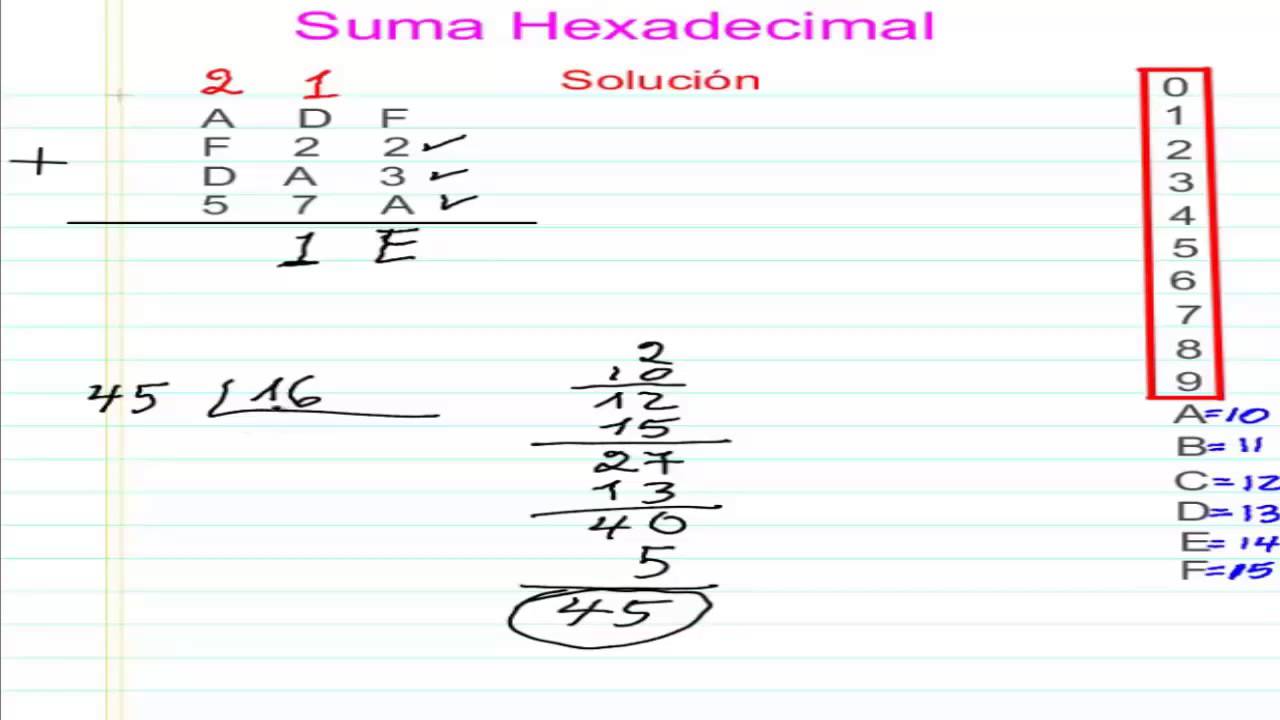 Suma Hexadecimal
2 1
Solución
A D F
+ F 2 2 ✓
D A 3 ✓
5 7 A ✓
1 E
45 16
2
10
12
15
27
13
40
5
45
0
1
2
3
4
5
6
7
8
9
A=10
B=11
C=12
D=13
E=14
F=15